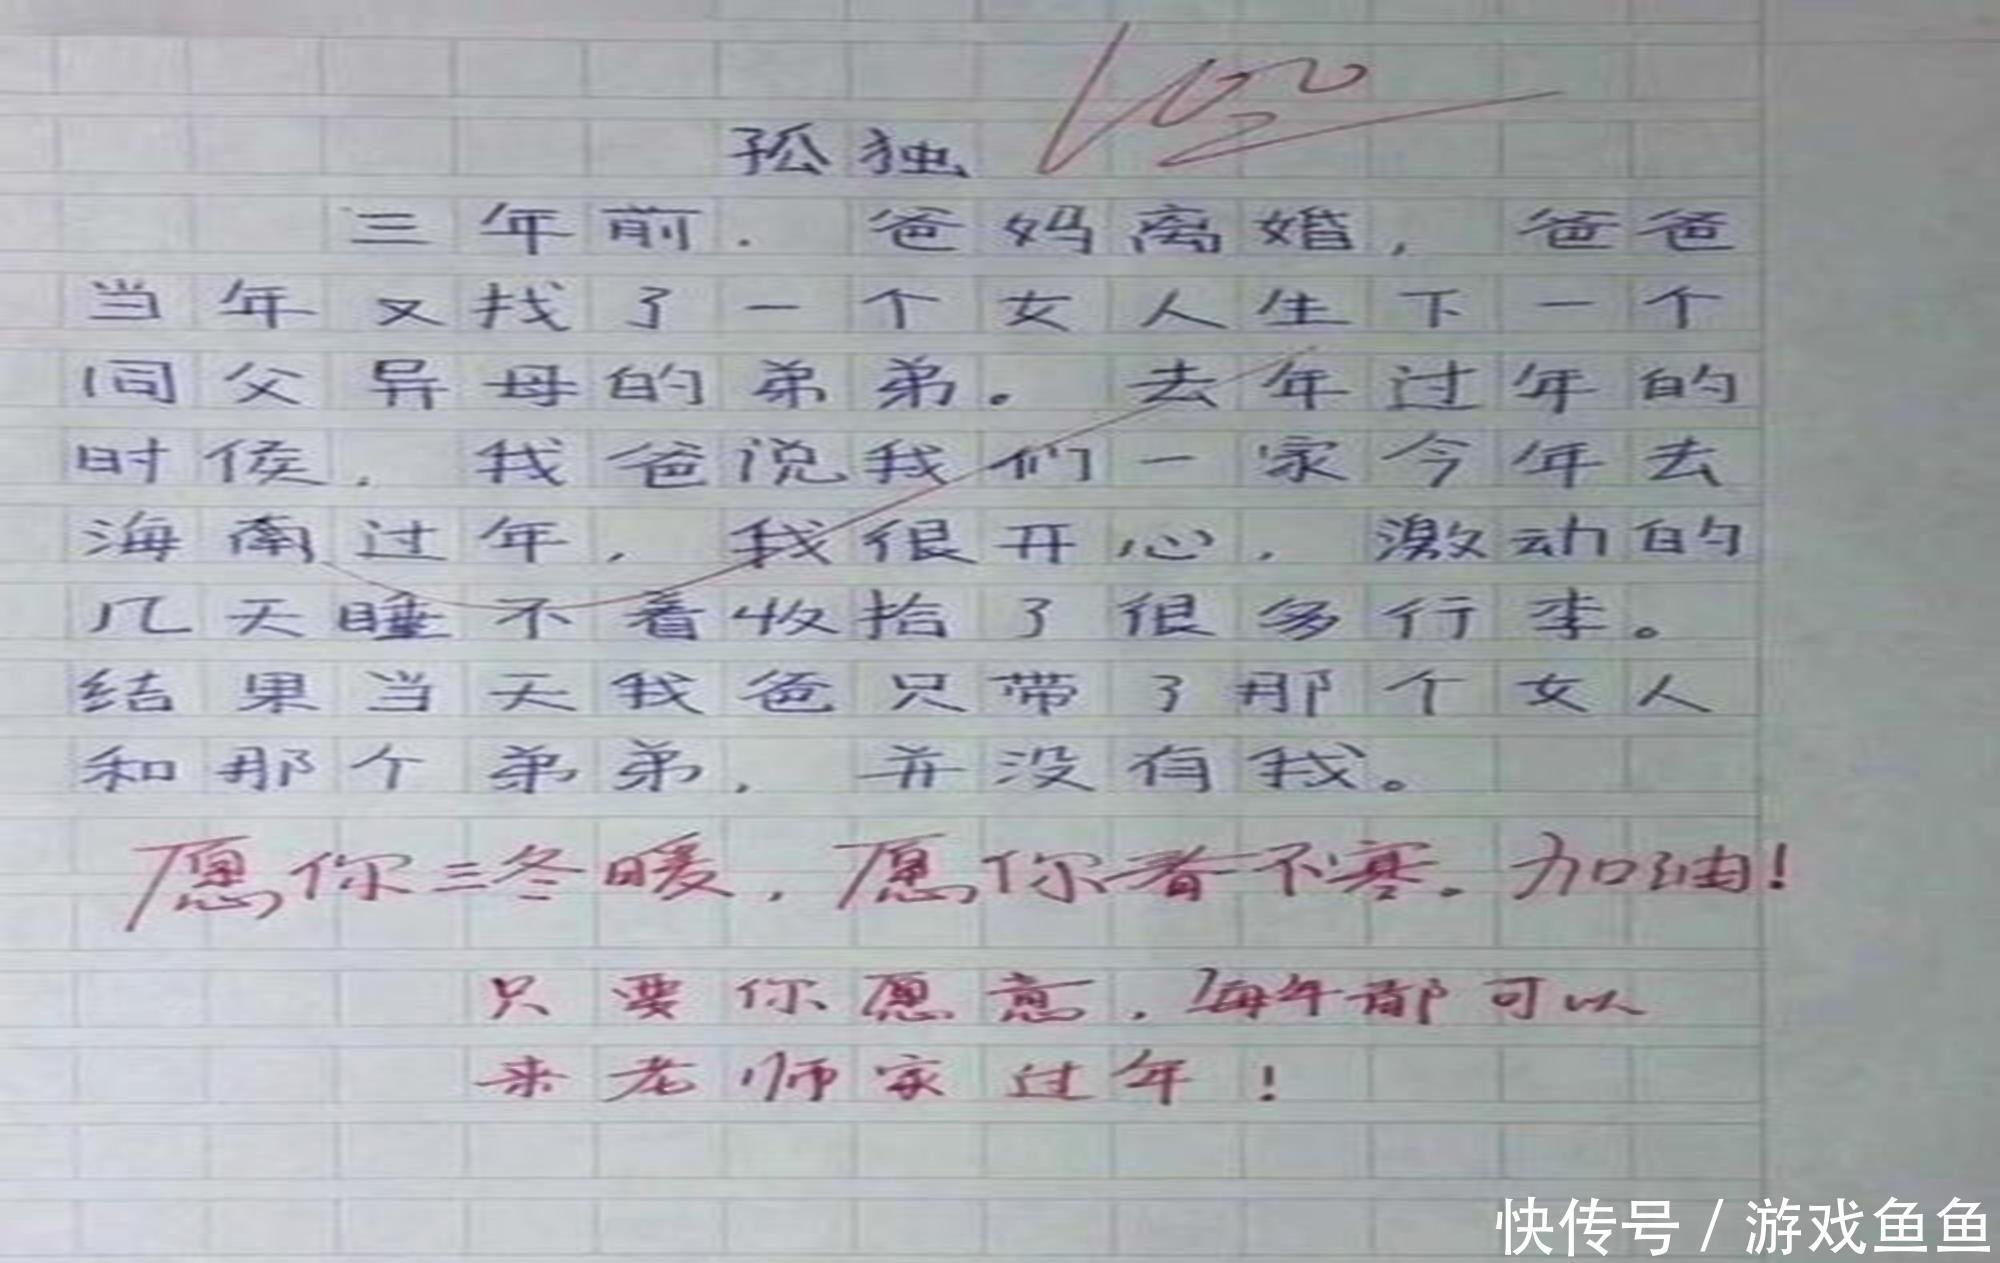 100
孤独
三年前.爸妈离婚,爸爸
当年又找了一个女人生下一个
同父异母的弟弟。去年过年的
时侯,我爸说我们一家今年去
海南过年,我很开心,激动的
几天睡不着收拾了很多行李。
结果当天我爸只带了那个女人
和那个弟弟,并没有我。
愿你三冬暖,愿你春不寒。加油!
只要你愿意,每年都可以
来老师家过年!
快传号/游戏鱼鱼